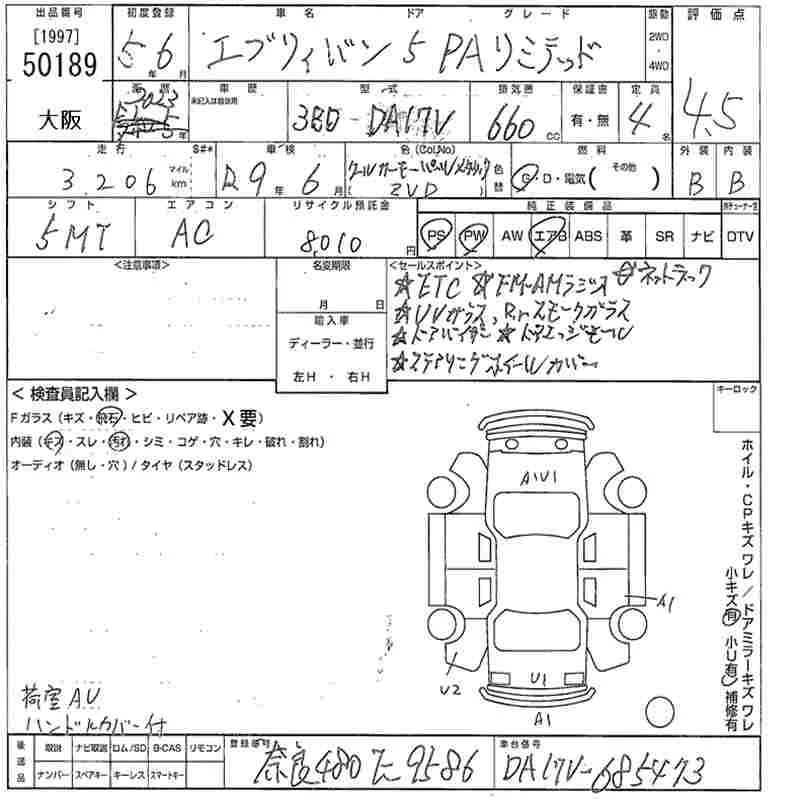 出品番号 初度登録 車名 ドア グレード 駆動 評価点
[1997] 50189 5年6月 エブリィバン 5 PAリミテッド 2WD・4WD 4.5
大阪
車歴 車歴 未記入は自家用 型式 排気量 保証書 定員
2023 3BD-DA17V 660cc 有・無 4名
走行 S#* 車検 色(Col,No) 燃料 外装 内装
3,206 マイル km R9年6月 クールカーキパールメタリック (ZVD) 色替 G・D・電気(その他) B B
シフト エアコン リサイクル預託金 純正装備品
5MT AC 8,010円 PS PW AW エアB ABS 革 SR ナビ DTV
<注意事項> 名変期限 <セールスポイント>
月 日
輸入車
ディーラー・並行
左H ・ 右H
☆ETC ☆FM・AMラジオ ☆ネットラック
☆UVガラス、Rrスモークガラス
☆ドアバイザー ☆ドアエッジモール
☆ステアリングホイールカバー
<検査員記入欄> キーロック
Fガラス(キズ・飛石・ヒビ・リペア跡・X要)
内装(キズ・スレ・汚れ・シミ・コゲ・穴・キレ・破れ・割れ)
オーディオ(無し・穴)/タイヤ(スタッドレス)
A1U1
A1
U2
U1
A1
ホイル・CPキズワレ/ドアミラーキズワレ
小キズ(有) 小U(有) 補修有
荷室AU
ハンドルカバー付
後送品 取説 ナビ取説 ロム/SD B-CAS リモコン
ナンバー スペアキー キーレス スマートキー
登録番号 奈良480 9586
車台番号 DA17V-685473